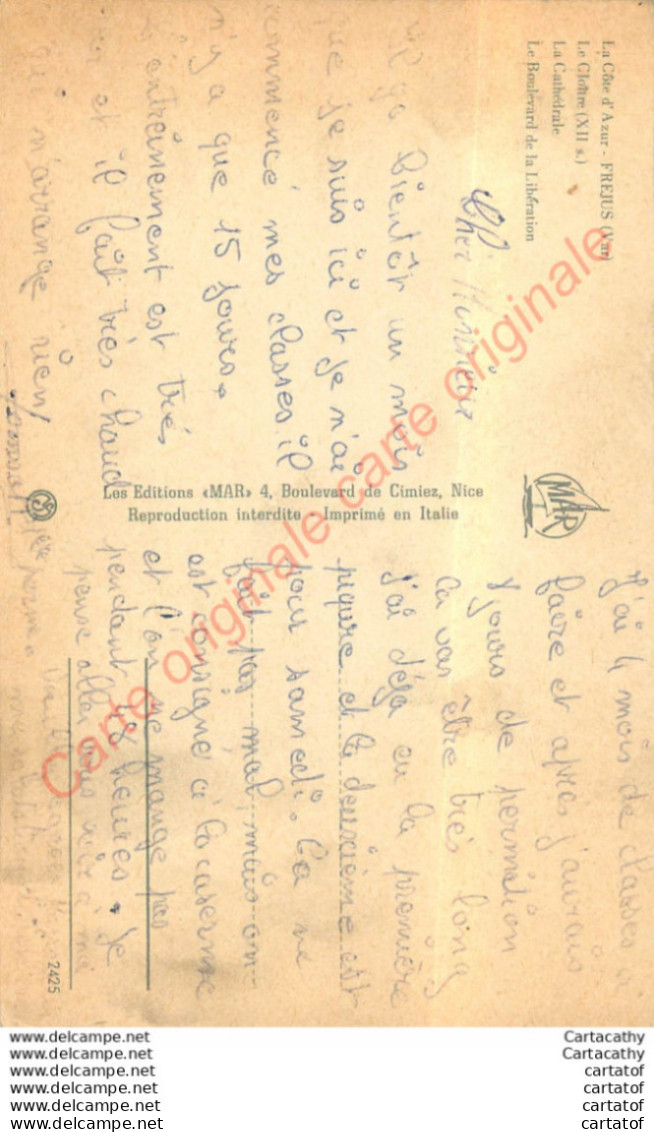 La Côte d'Azur - FREJUS (Var)
Le Cloître (XII s.)
La Cathédrale
Le Boulevard de la Libération
Cher
Il y a bientôt un mois
que je suis ici et je n'ai
commencé mes classes il
n'y a que 15 jours.
L'entraînement est très
et il fait très chaud
qui n'arrange rien
MAR
Les Editions «MAR» 4, Boulevard de Cimiez, Nice
Reproduction interdite - Imprimé en Italie
J'ai 4 mois de classes à
faire et après j'aurais
jours de permition
ca vas être très long
j'ai déja eu la première
piqure et la deuxième est
pour samedi. Ca ne
fait pas mal, mais on
est consigné à la caserne
et l'on ne mange pas
pendant 48 heures. Je
pense aller vous voir à ma
perme
2425
Carte originale carte originale
www.delcampe.net
www.delcampe.net
www.delcampe.net
www.delcampe.net
www.delcampe.net
www.delcampe.net
Cartacathy
Cartacathy
cartatof
cartatof
cartatof
cartatof